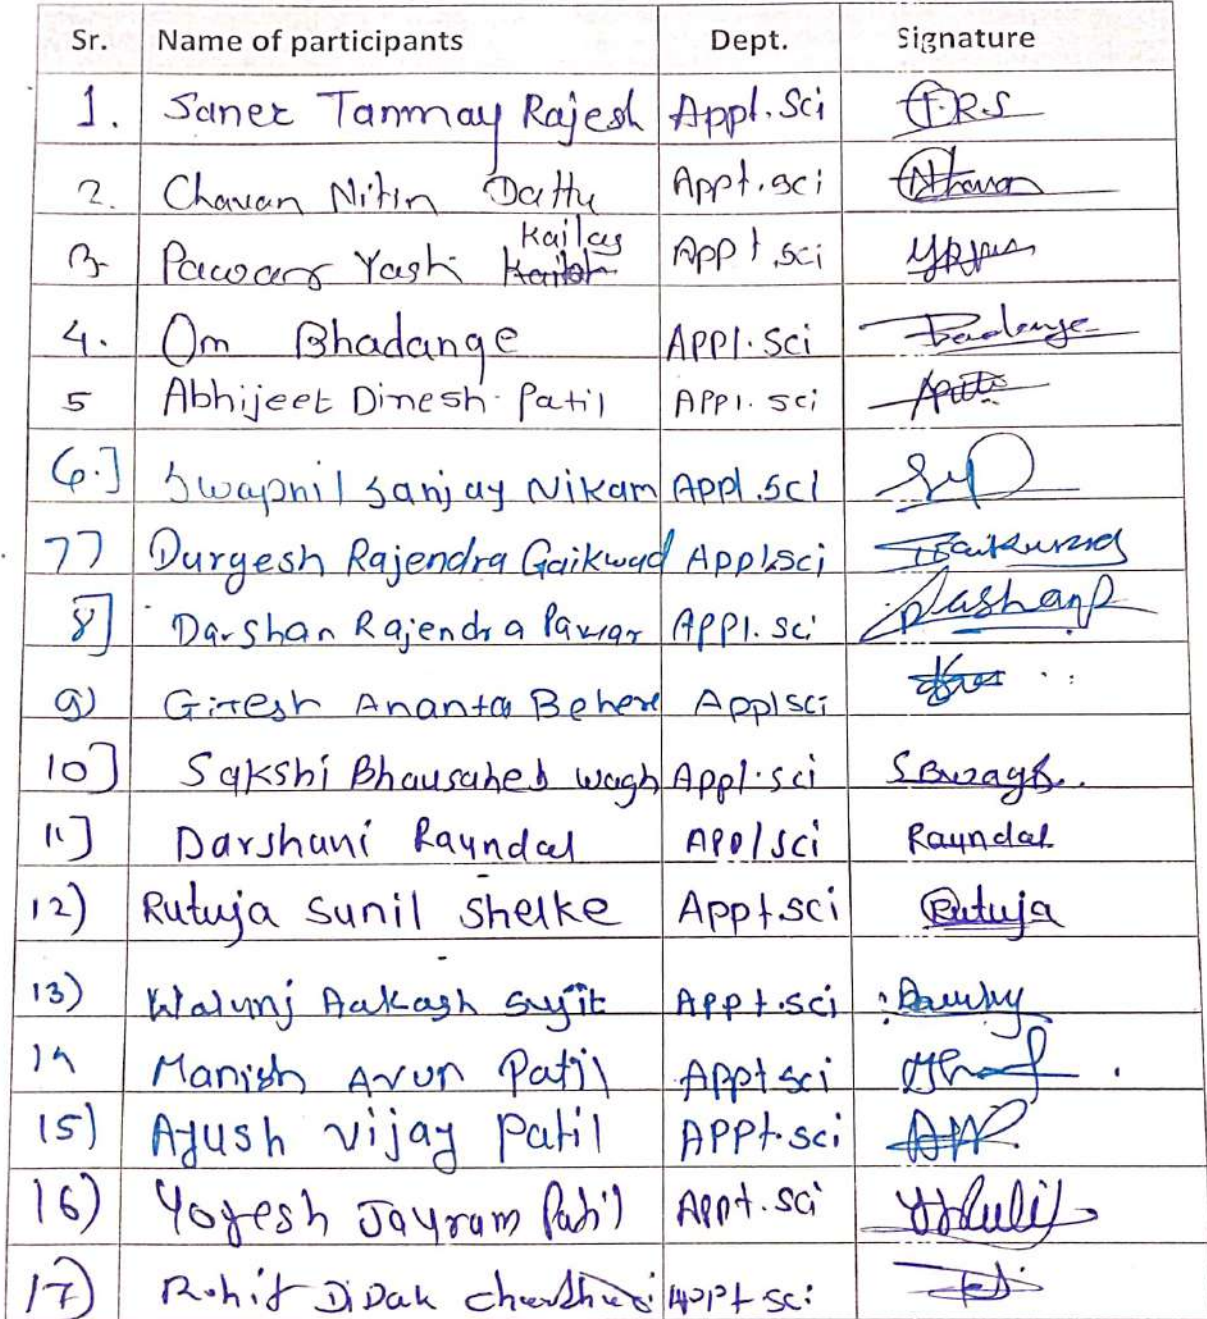 Sr. Name of participants Dept. Signature
1. Saner Tanmay Rajesh Appl. Sci T.R.S
2. Chavan Nitin Dattu Appt. sci
3. Pawar Yash Kailas Appt. sci
4. Om Bhadange APPl. Sci Badange
5 Abhijeet Dinesh Patil APPl. sci
6.] Swapnil Sanjay Nikam Appl. sci
7] Durgesh Rajendra Gaikwad Appl.sci Gaikwad
8] Darshan Rajendra Pawar APPl. sci
9) Giresh Ananta Behere Applsci
10] Sakshi Bhausaheb wagh Appl. sci
11] Darshani Rayndal Appl sci Rayndal
12) Rutuja Sunil Shelke Appt.sci Rutuja
13) Walunj Aakash Sujit Appt.sci
14 Manish Arun Patil Appt sci
15) Ayush vijay patil APPt.sci
16) Yogesh Jayram Patil Appt. sci
17) Rohit Dipak chaudhari Appt sci